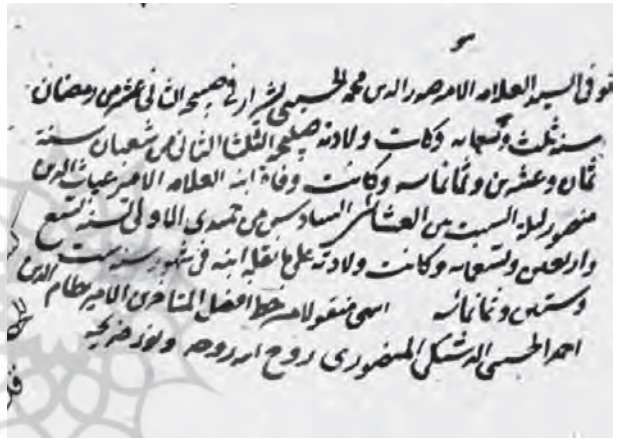 هو
توفی السید العلامه الامیر صدر الدین محمد الحسینی بشیراز فی صبیحه الثانی عشر من رمضان
سنه ثلث و تسعمائه و کانت ولادته صبیحه الثلثا الثانی من شعبان سنة
ثمان و عشرین و ثمانمائه و کانت وفاة ابنه العلامه الامیر غیاث الدین
منصور لیله السبت من العشر السادس من جمیدی الاولی سنه تسع
و اربعین و تسعمائه و کانت ولادته علی ما نقله ابنه فی شهور سنه ست
و ستین و ثمانمائه انتهی منقولا من خط افضل المتاخرین الامیر نظام الدین
احمد الحسینی الدشتکی المنصوری روح الله روحه و نور ضریحه